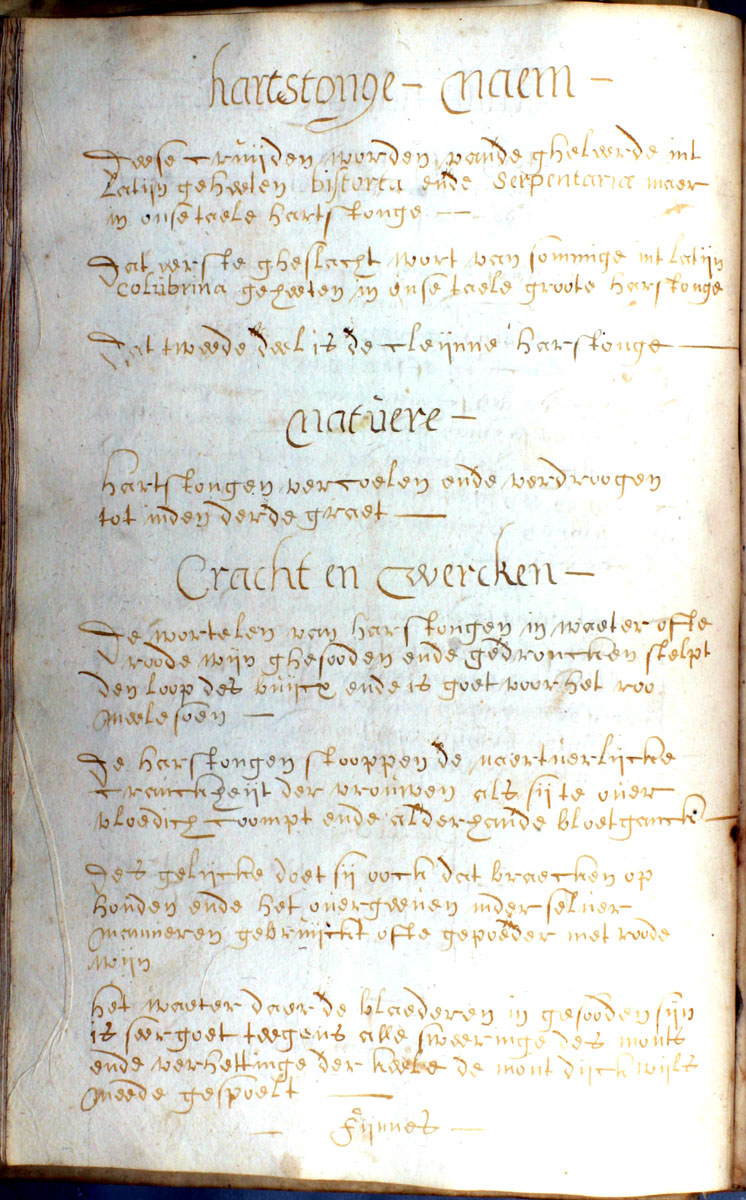 hartstonge – Naem –
Deese cruijden worden vande gheleerde int
Latijn geheeten bistorta ende Serpentaria maer
in onse taele hartstonge —
Dat eerste gheslacht wort van sommige int latijn
Colubrina geheeten in onse taele groote harstonge
Dat tweede deel is de cleijnne harstonge —
Natuere –
hartstongen vercoelen ende verdroogen
tot inden derde graet —
Cracht en Wercken –
De wortelen van harstongen in waeter ofte
roode wijn ghesooden ende gedroncken stelpt
den loop des buijcx ende is goet voor het roo
meelesoen —
De harstongen stooppen de naertuerlijcke
cranckheijt der vrouwen als sij te over
vloedich coompt ende alderhande bloetganck —
Des gelijcke doet sij oock dat braecken op
houden ende het overgeeven inder selver
manneren gebruijckt ofte gepoeder met roode
wijn
het waeter daer de blaederen in gesooden sijn
is seer goet teegens alle sweeringe des monts
ende verhettinge der keele de mont dijckwijls
meede gespoelt —
— Fijnnes —